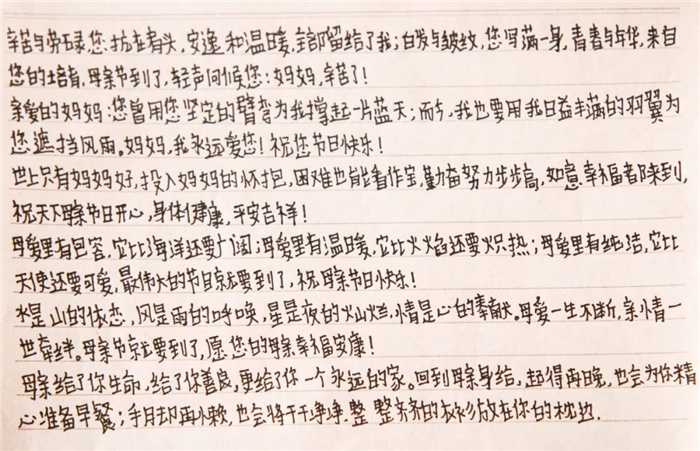 辛苦与劳碌,您扛在肩头,安逸和温暖,全部留给了我;白发与皱纹,您写满一身,青春与年华,来自
您的培育,母亲节到了,轻声问候您:妈妈,辛苦了!
亲爱的妈妈:您曾用您坚定的臂弯为我撑起一片蓝天;而今,我也要用我日益丰满的羽翼为
您遮挡风雨。妈妈,我永远爱您!祝您节日快乐!
世上只有妈妈好,投入妈妈的怀抱,困难也能看作宝,勤奋努力步步高,如意幸福都来到,
祝天下母亲节日开心,身体健康,平安吉祥!
母爱里有包容,它比海洋还要广阔;母爱里有温暖,它比火焰还要炽热;母爱里有纯洁,它比
天使还要可爱,最伟大的节日就要到了,祝母亲节日快乐!
水是山的依恋,风是雨的呼唤,星是夜的灿烂,情是心的奉献。母爱一生不断,亲情一
世牵绊。母亲节就要到了,愿您的母亲幸福安康!
母亲给了你生命,给了你善良,更给了你一个永远的家。回到母亲身给,起得再晚,也会为你精
心准备早餐;手脚再懒,也会将干干净净.整 整齐齐的衣衫放在你的枕边.